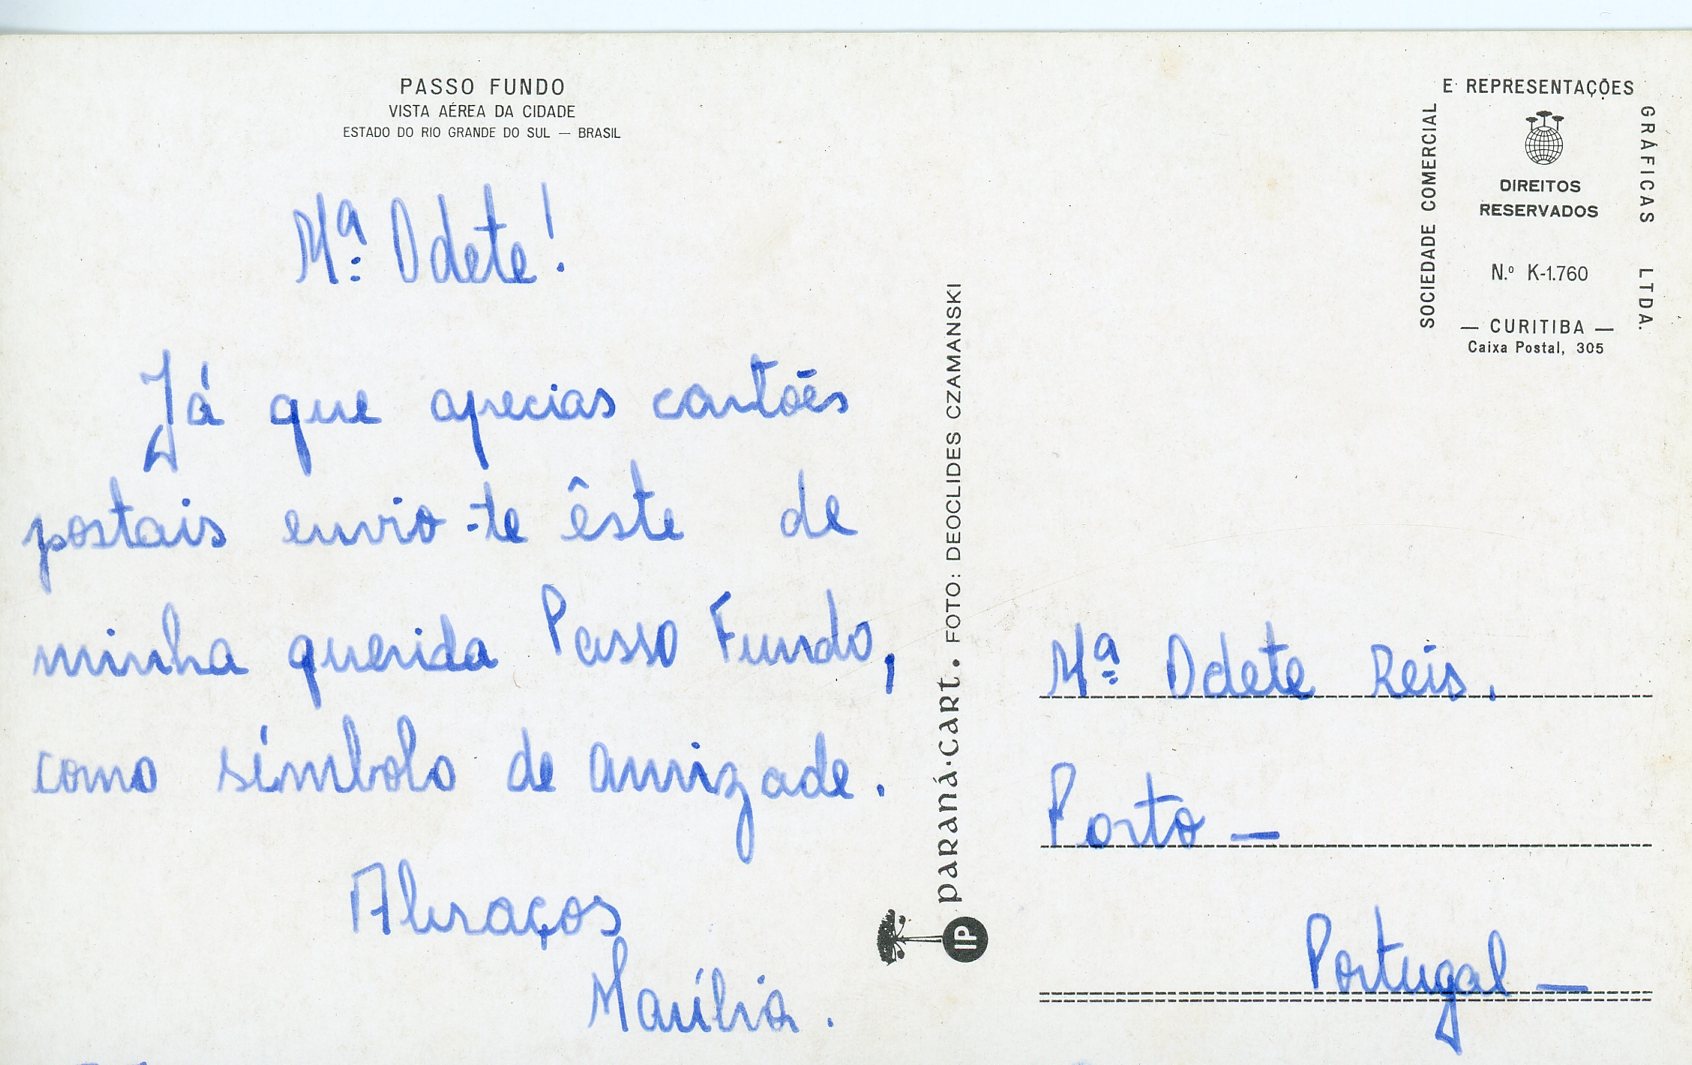 PASSO FUNDO
VISTA AÉREA DA CIDADE
ESTADO DO RIO GRANDE DO SUL — BRASIL
Mª Odete!
Já que apecias cartões
postais envio-te êste de
minha querida Passo Fundo,
como símbolo de amizade.
Abraços
Marília.
paraná-cart. • FOTO: DEOCLIDES CZAMANSKI
IP
SOCIEDADE COMERCIAL
E REPRESENTAÇÕES
GRÁFICAS LTDA.
DIREITOS
RESERVADOS
N.º K-1.760
— CURITIBA —
Caixa Postal, 305
Mª Odete Reis.
Porto —
Portugal —